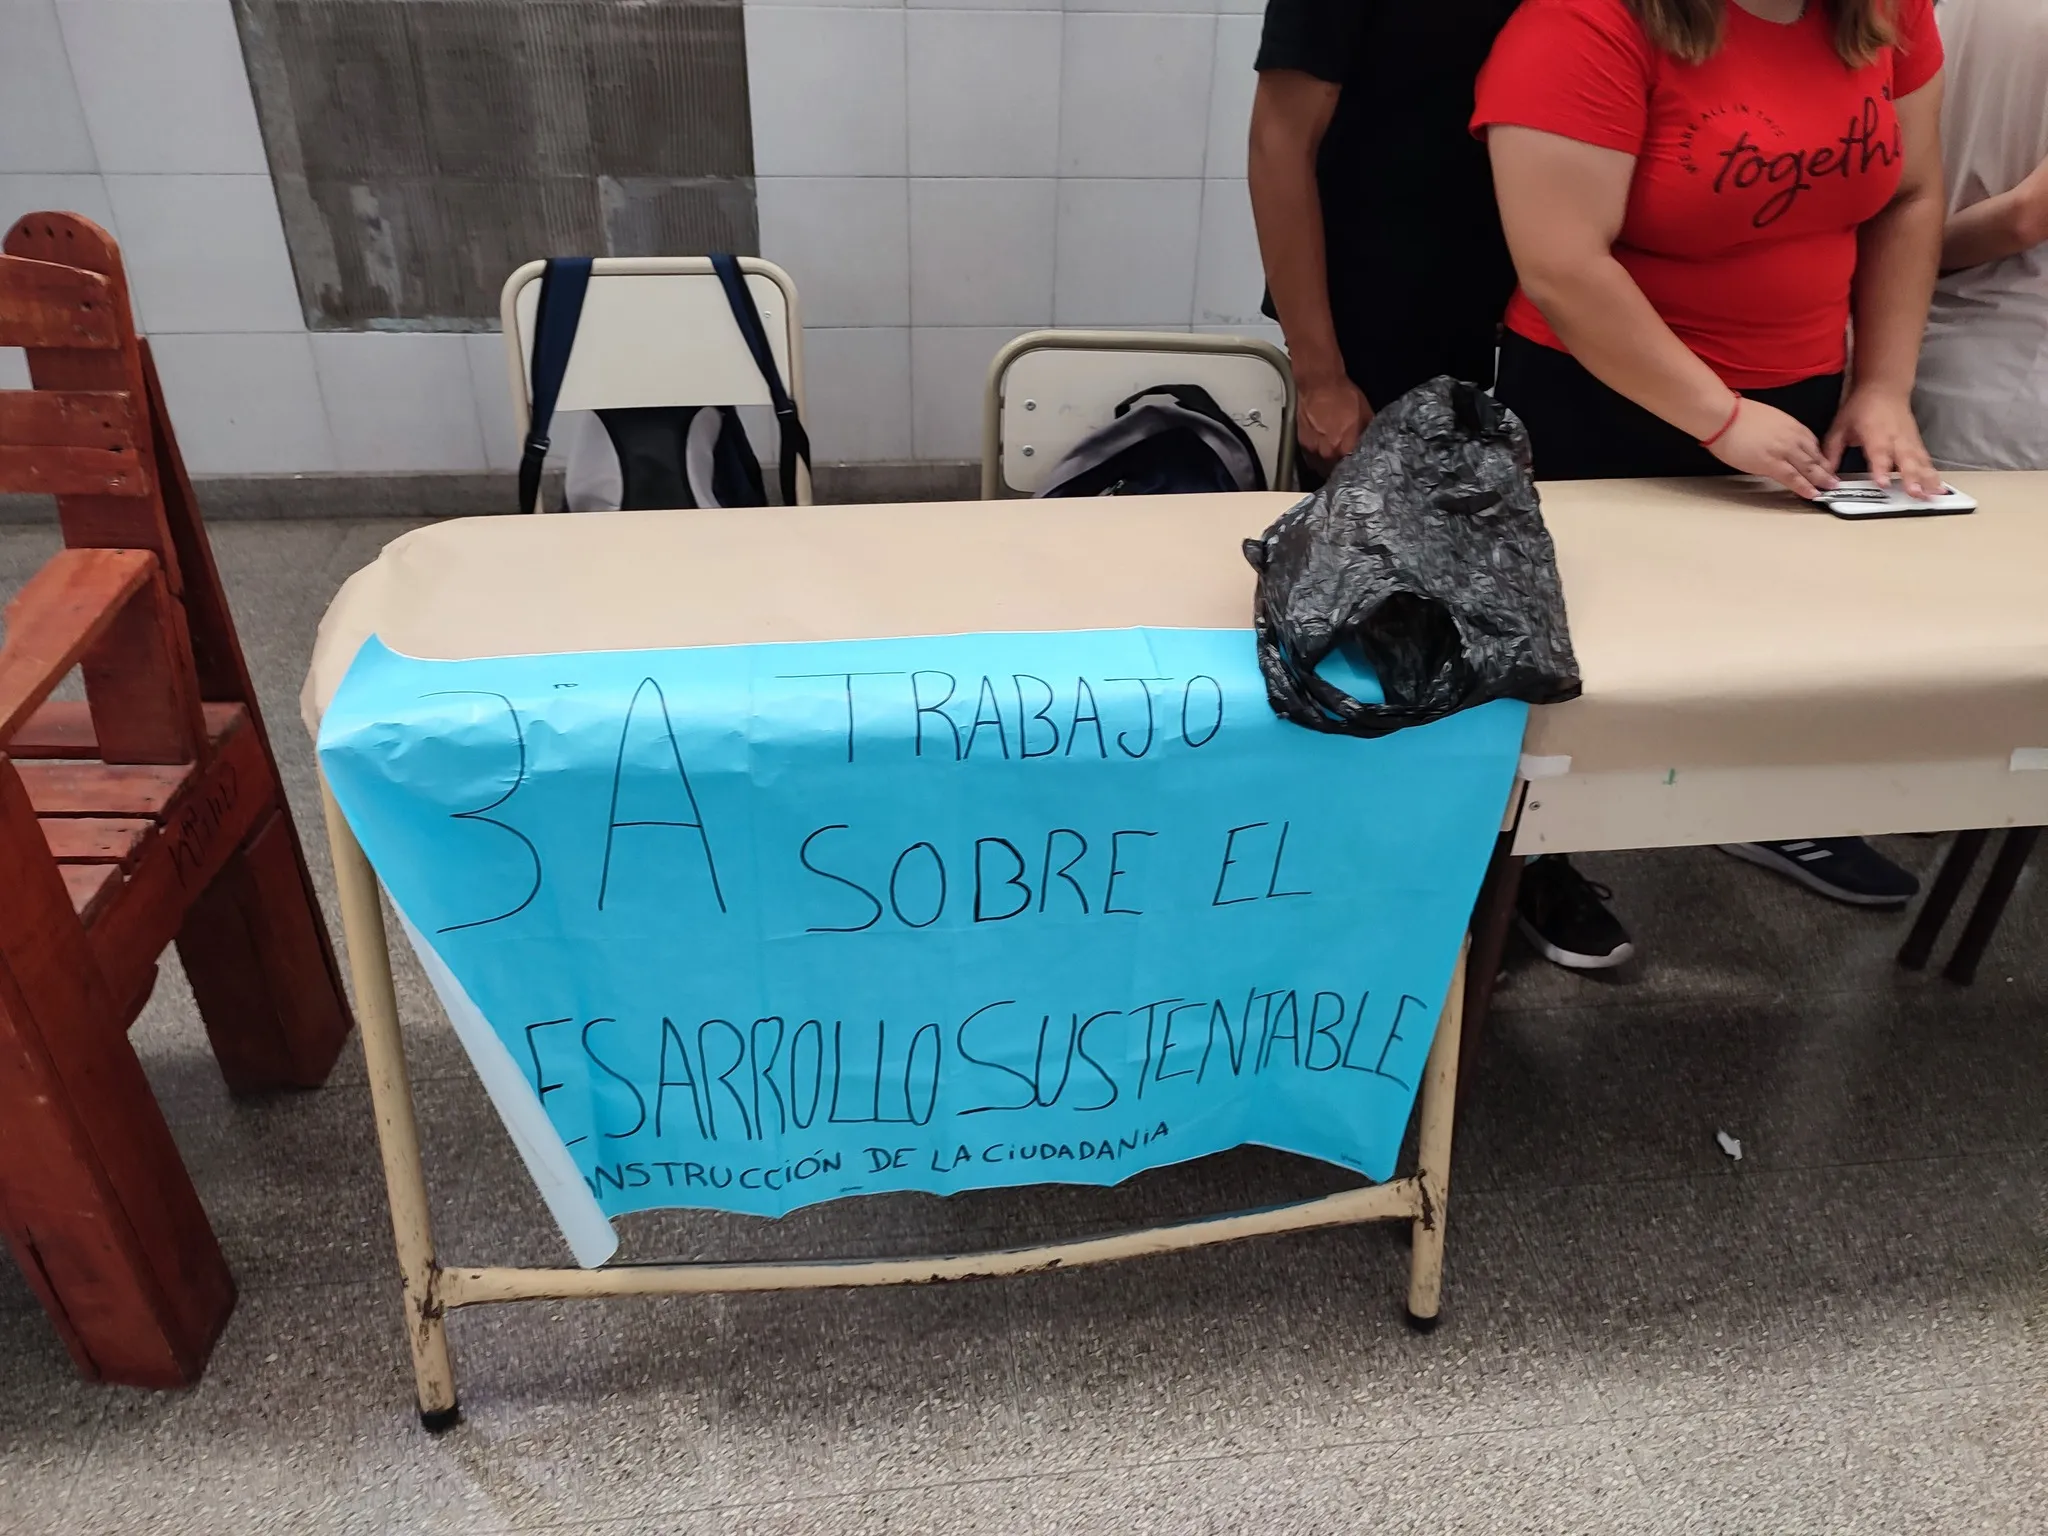 WE ARE ALL IN THIS
togeth
3ª A TRABAJO
SOBRE EL
ESARROLLO SUSTENTABLE
ONSTRUCCIÓN DE LA CIUDADANIA